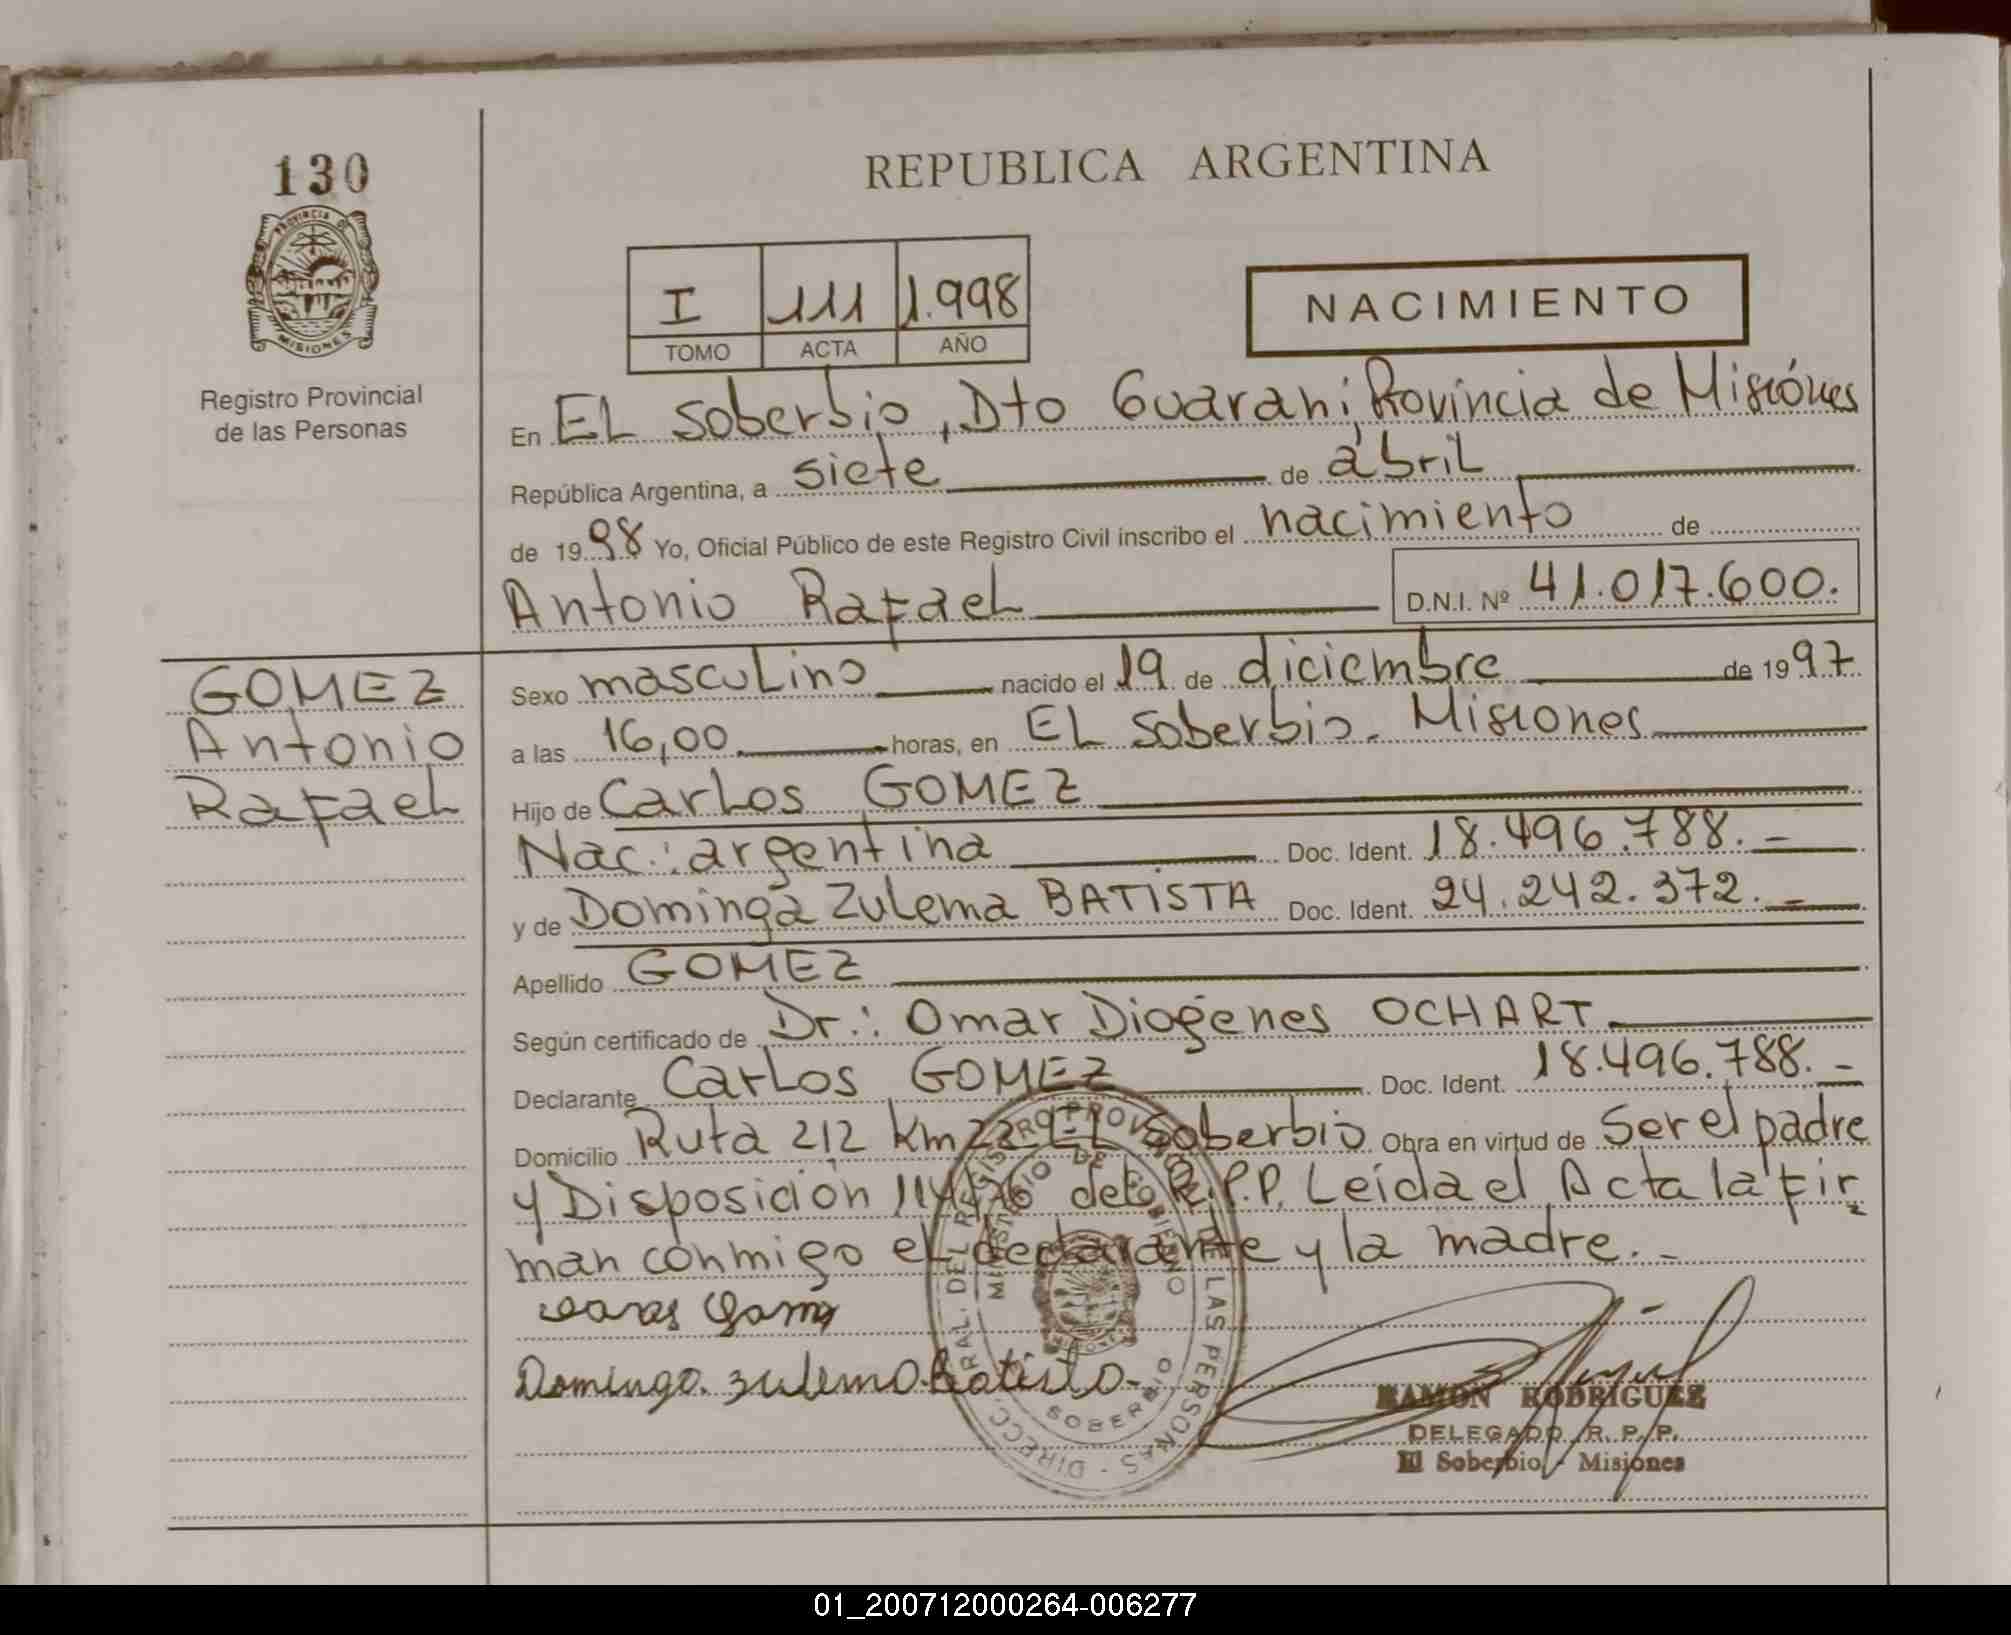 130
PROVINCIA DE
MISIONES
Registro Provincial
de las Personas
REPUBLICA ARGENTINA
I 111 1.998
TOMO ACTA AÑO
NACIMIENTO
En EL Soberbio, Dto Guaraní, Provincia de Misiónes
República Argentina, a siete de abril
de 1998 Yo, Oficial Público de este Registro Civil inscribo el nacimiento de
Antonio Rafael D.N.I. Nº 41.017.600.
GOMEZ
Antonio
Rafael
Sexo masculino nacido el 19 de diciembre de 1997
a las 16,00 horas, en EL Soberbio. Misiones
Hijo de Carlos GOMEZ
Nac.: argentina Doc. Ident. 18.496.788.-
y de Dominga Zulema BATISTA Doc. Ident. 24.242.372.-
Apellido GOMEZ
Según certificado de Dr.: Omar Diogenes OCHART
Declarante Carlos GOMEZ Doc. Ident. 18.496.788.-
Domicilio Ruta 212 Km 22 EL Soberbio Obra en virtud de Ser el padre
y Disposición 114/76 del R.P.P. Leída el Acta la fir
man conmigo el declarante y la madre.-
Dominga Zulema Batista.
DIRECC. GRAL. DEL REGISTRO PROVINCIAL DE LAS PERSONAS
MINISTERIO DE GOBIERNO
SOBERBIO
RAMON RODRIGUEZ
DELEGADO R. P. P.
El Soberbio - Misiones
01_200712000264-006277